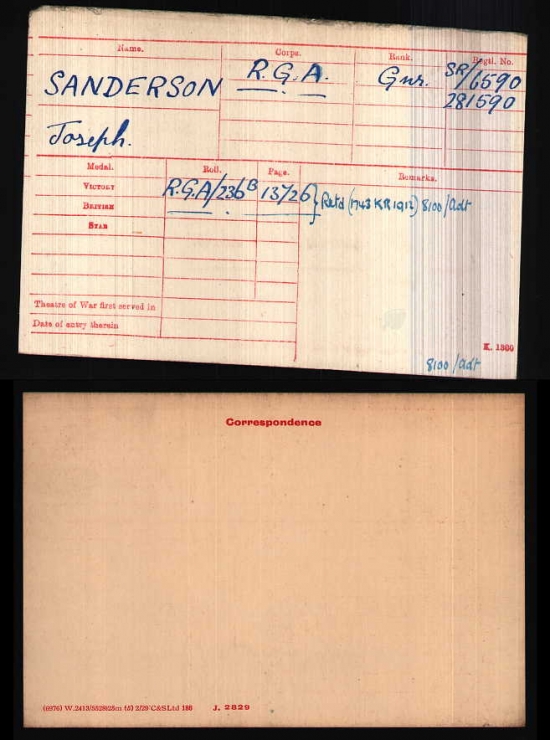 Name. Corps. Rank. Regtl. No.
SANDERSON R.G.A. Gnr. SR/6590
281590
Joseph.
Medal. Roll. Page. Remarks.
VICTORY R.G.A/236B 13726 } Retd (1743 KR 1912) 8100/Adt
BRITISH
STAR
Theatre of War first served in
Date of entry therein
K. 1380
8100/Adt
Correspondence
(6976) W.2413/5528 2/29 C&SLtd 188 J. 2829